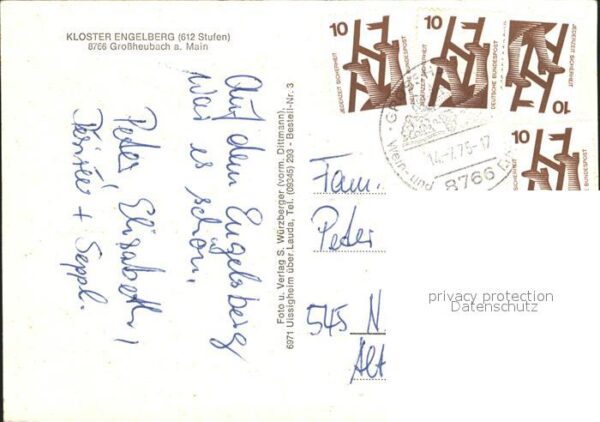 KLOSTER ENGELBERG (612 Stufen)
8766 Großheubach a. Main
Auf dem Engelsberg
war es schön.
Peter, Elisabeth,
+ Seppl.
Foto u. Verlag S. Würzberger (vorm. Dittmann),
6971 Uissigheim über Lauda, Tel. (09345) 293 - Bestell-Nr. 3
10
JEDERZEIT SICHERHEIT
DEUTSCHE BUNDESPOST
10
JEDERZEIT SICHERHEIT
DEUTSCHE BUNDESPOST
10
JEDERZEIT SICHERHEIT
10
BUNDESPOST
Wein- und
8766
Fam.
Peter
545 N
Alt
privacy protection
Datenschutz